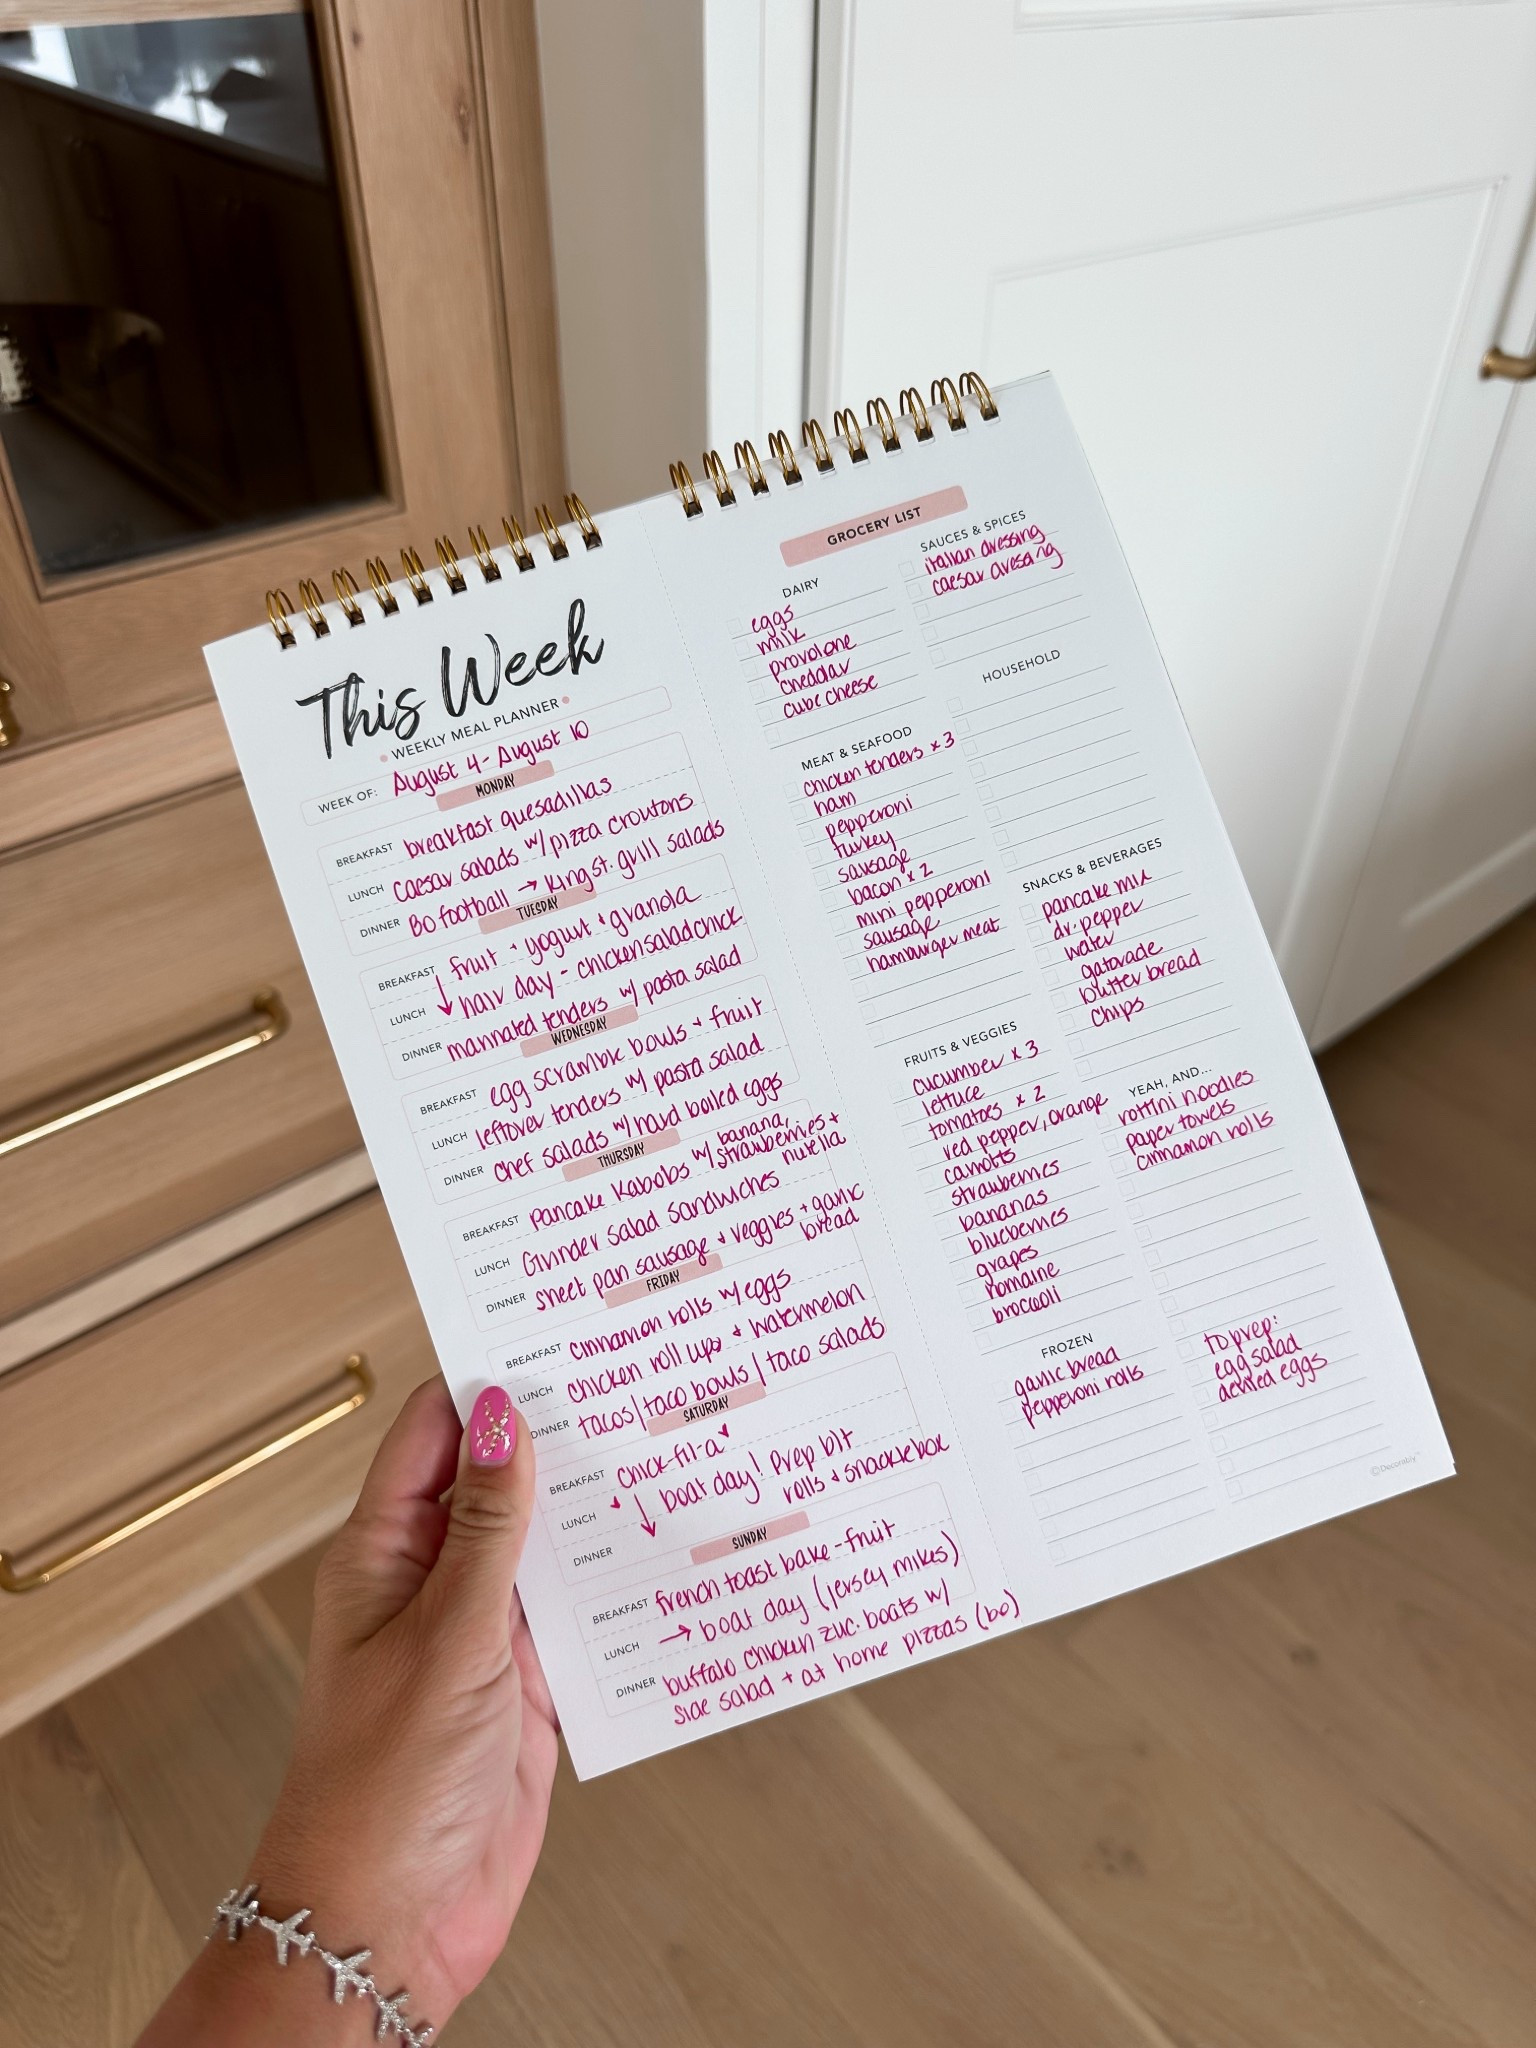 This Week
• WEEKLY MEAL PLANNER •
WEEK OF: August 4 - August 10
MONDAY
BREAKFAST breakfast quesadillas
LUNCH caesar salads w/ pizza croutons
DINNER Bo football → King St. grill salads
TUESDAY
BREAKFAST fruit + yogurt + granola
LUNCH ↓ hair day - chickensaladchick
DINNER marinated tenders w/ pasta salad
WEDNESDAY
BREAKFAST egg scramble bowls + fruit
LUNCH leftover tenders w/ pasta salad
DINNER chef salads w/ hard boiled eggs
THURSDAY
BREAKFAST pancake kabobs w/ banana, strawberries + nutella
LUNCH Grinder salad sandwiches
DINNER sheet pan sausage + veggies + garlic bread
FRIDAY
BREAKFAST cinnamon rolls w/ eggs
LUNCH chicken roll ups + watermelon
DINNER tacos/taco bowls/taco salads
SATURDAY
BREAKFAST chick-fil-a ♥
LUNCH ♥ ↓ boat day! Prep blt
rolls + snacklebox
DINNER
SUNDAY
BREAKFAST french toast bake - fruit
LUNCH → boat day (jersey mikes)
DINNER buffalo chicken zuc. boats w/
side salad + at home pizzas (bo)
GROCERY LIST
DAIRY
eggs
milk
provolone
cheddar
cube cheese
MEAT & SEAFOOD
chicken tenders x 3
ham
pepperoni
turkey
sausage
bacon x 2
mini pepperoni
sausage
hamburger meat
FRUITS & VEGGIES
cucumber x 3
lettuce
tomatoes x 2
red pepper, orange
carrots
strawberries
bananas
blueberries
grapes
romaine
broccoli
FROZEN
garlic bread
pepperoni rolls
SAUCES & SPICES
italian dressing
caesar dressing
HOUSEHOLD
SNACKS & BEVERAGES
pancake mix
dr. pepper
water
gatorade
butter bread
chips
YEAH, AND...
rottini noodles
paper towels
cinnamon rolls
to prep:
egg salad
deviled eggs
©Decorably™